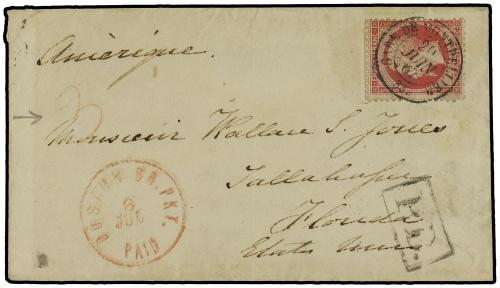 Amérique.
Monsieur Wallace S. Jones
Tallahassee
Florida
Etats Unis
BOSTON BR. PKT.
PAID
P.D.
JUIN
67